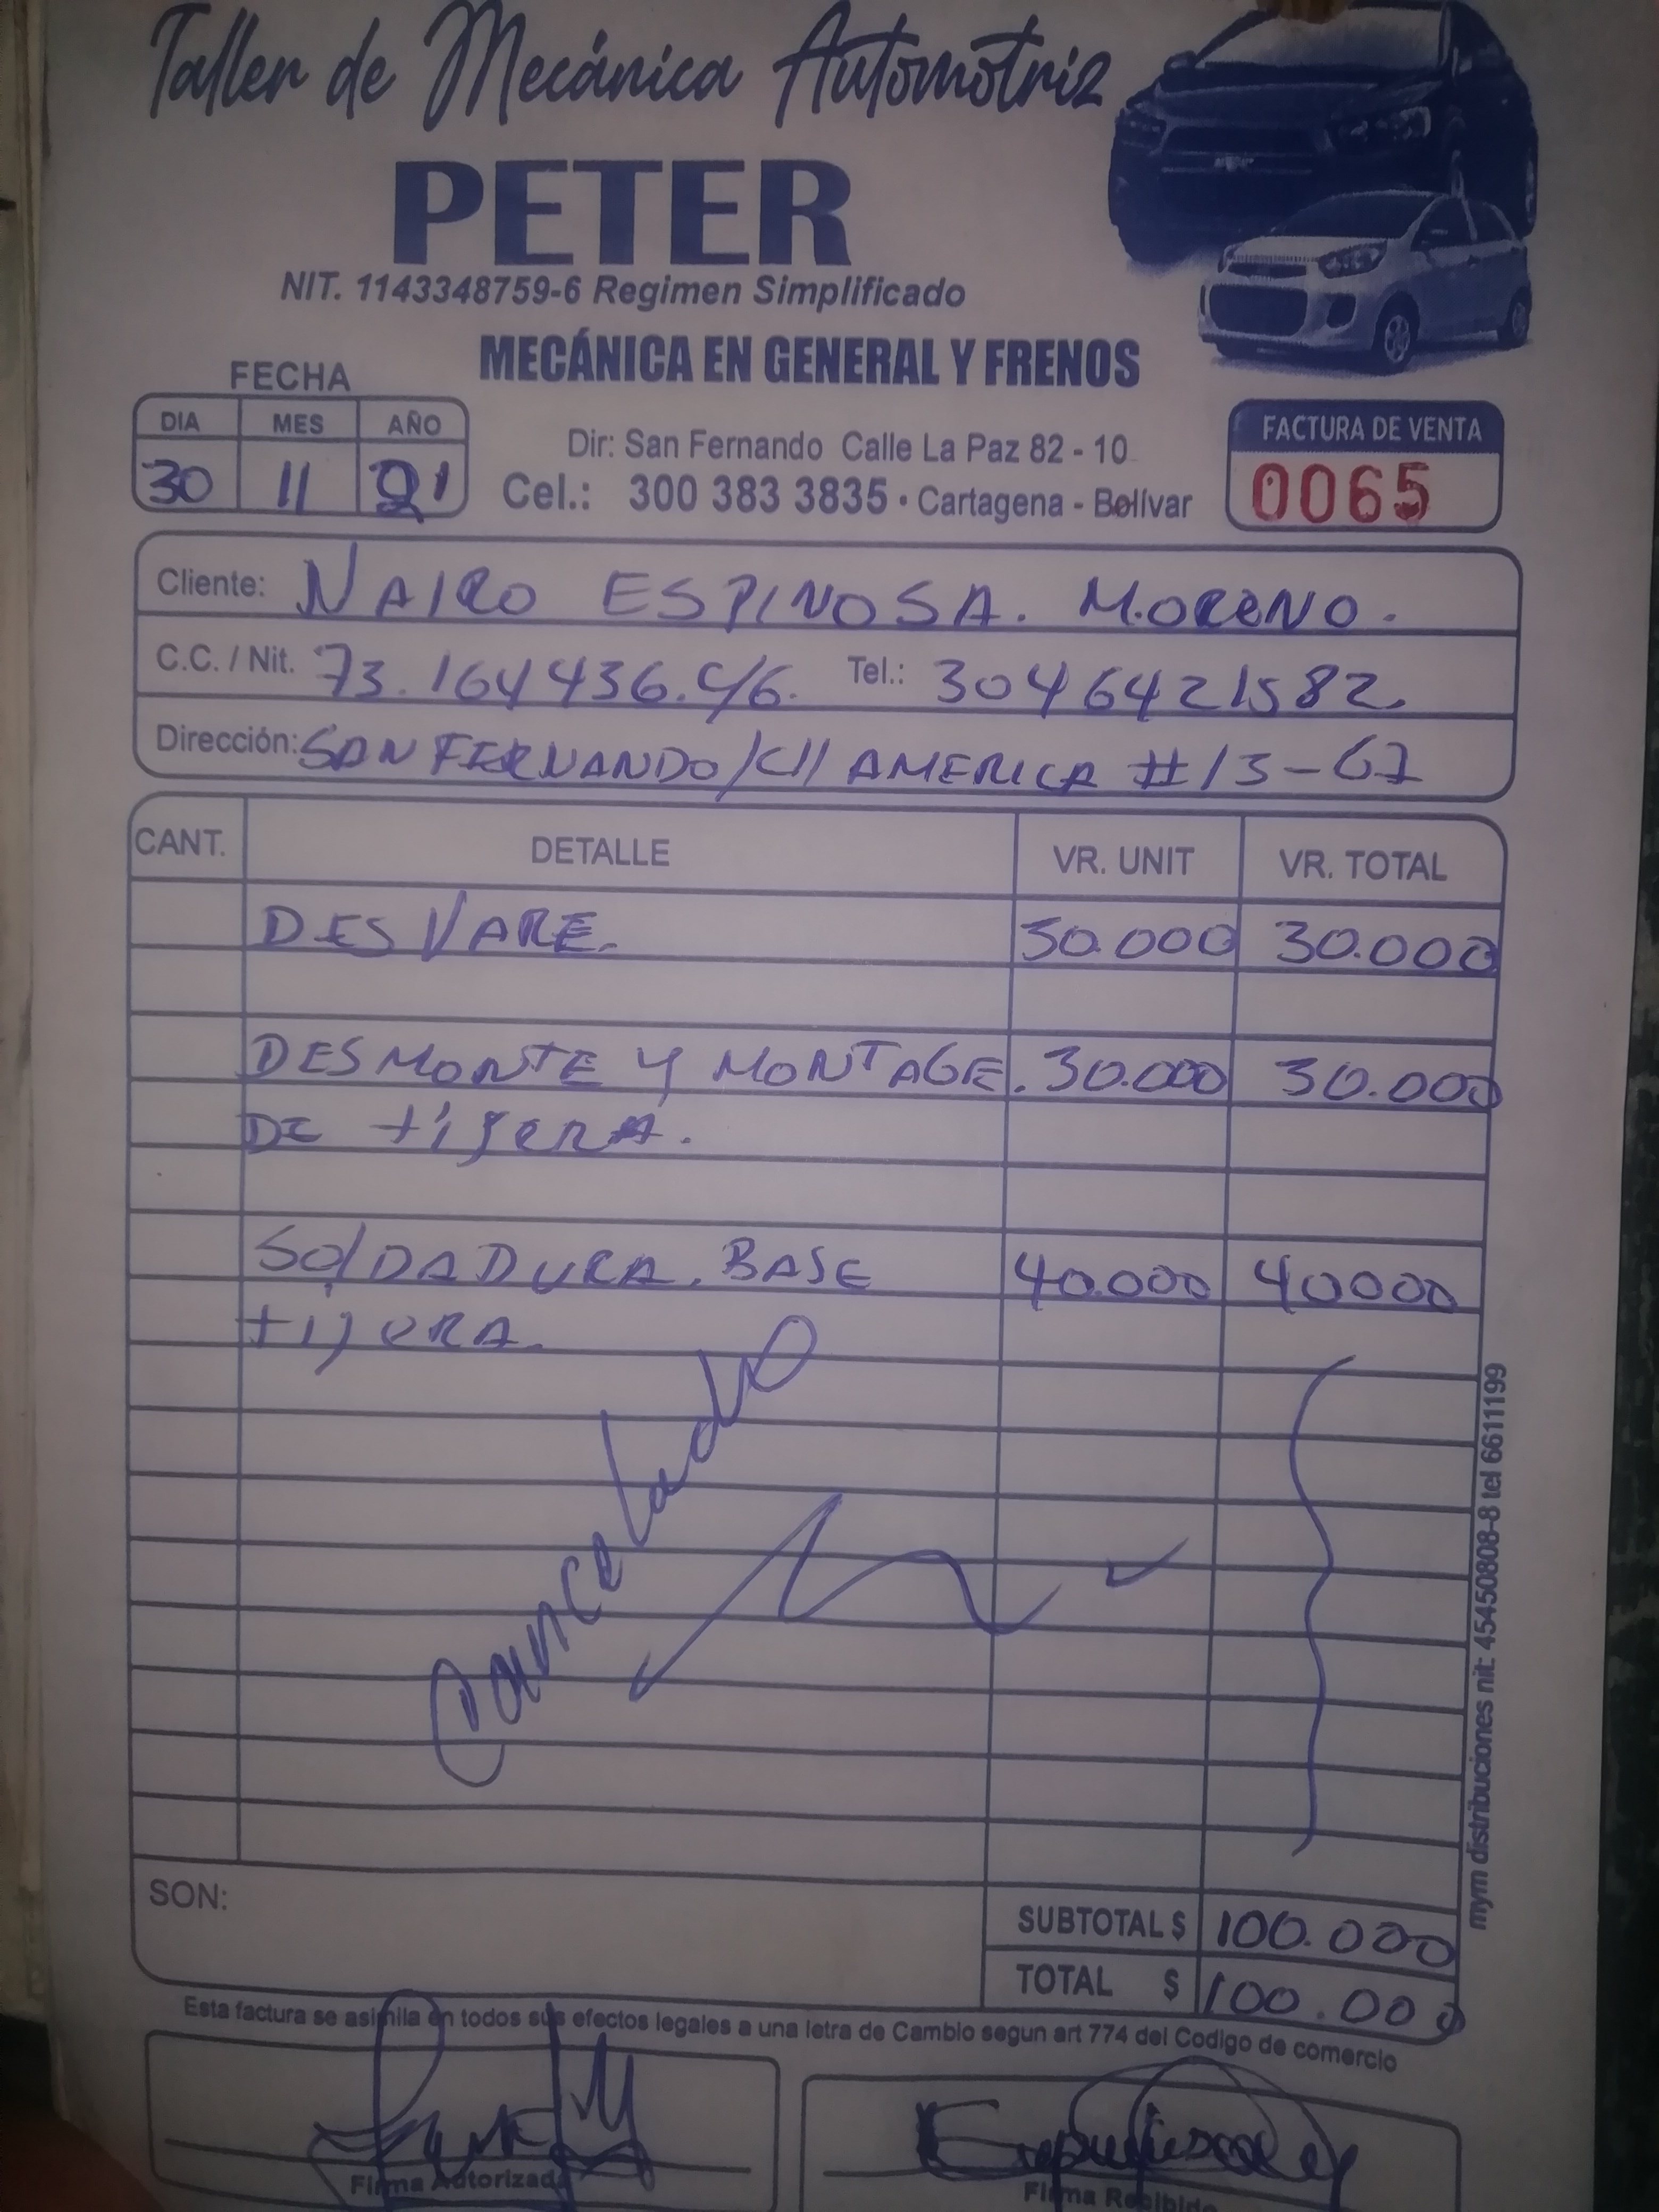 Taller de Mecánica Automotriz
PETER
NIT. 1143348759-6 Regimen Simplificado
MECÁNICA EN GENERAL Y FRENOS
FECHA
DIA MES AÑO
30 11 21
Dir: San Fernando Calle La Paz 82 - 10
Cel.: 300 383 3835 • Cartagena - Bolívar
FACTURA DE VENTA
0065
Cliente: NAIRO ESPINOSA. MORENO.
C.C. / Nit. 73.164436.C/G. Tel.: 3046421582
Dirección: SAN FERNANDO/Cll AMERICA #13-67
CANT. DETALLE VR. UNIT VR. TOTAL
DESVARE. 30.000 30.000
DESMONTE Y MONTAGE. 30.000 30.000
DE tijERA.
SOlDADURA. BASE 40.000 40000
tijERA.
Cancelado
SON:
SUBTOTAL $ 100.000
TOTAL $ 100.000
Esta factura se asimila en todos sus efectos legales a una letra de Cambio segun art 774 del Codigo de comercio
Firma Autorizada
Firma Recibido
mym distribuciones nit: 45450808-8 tel 6611199